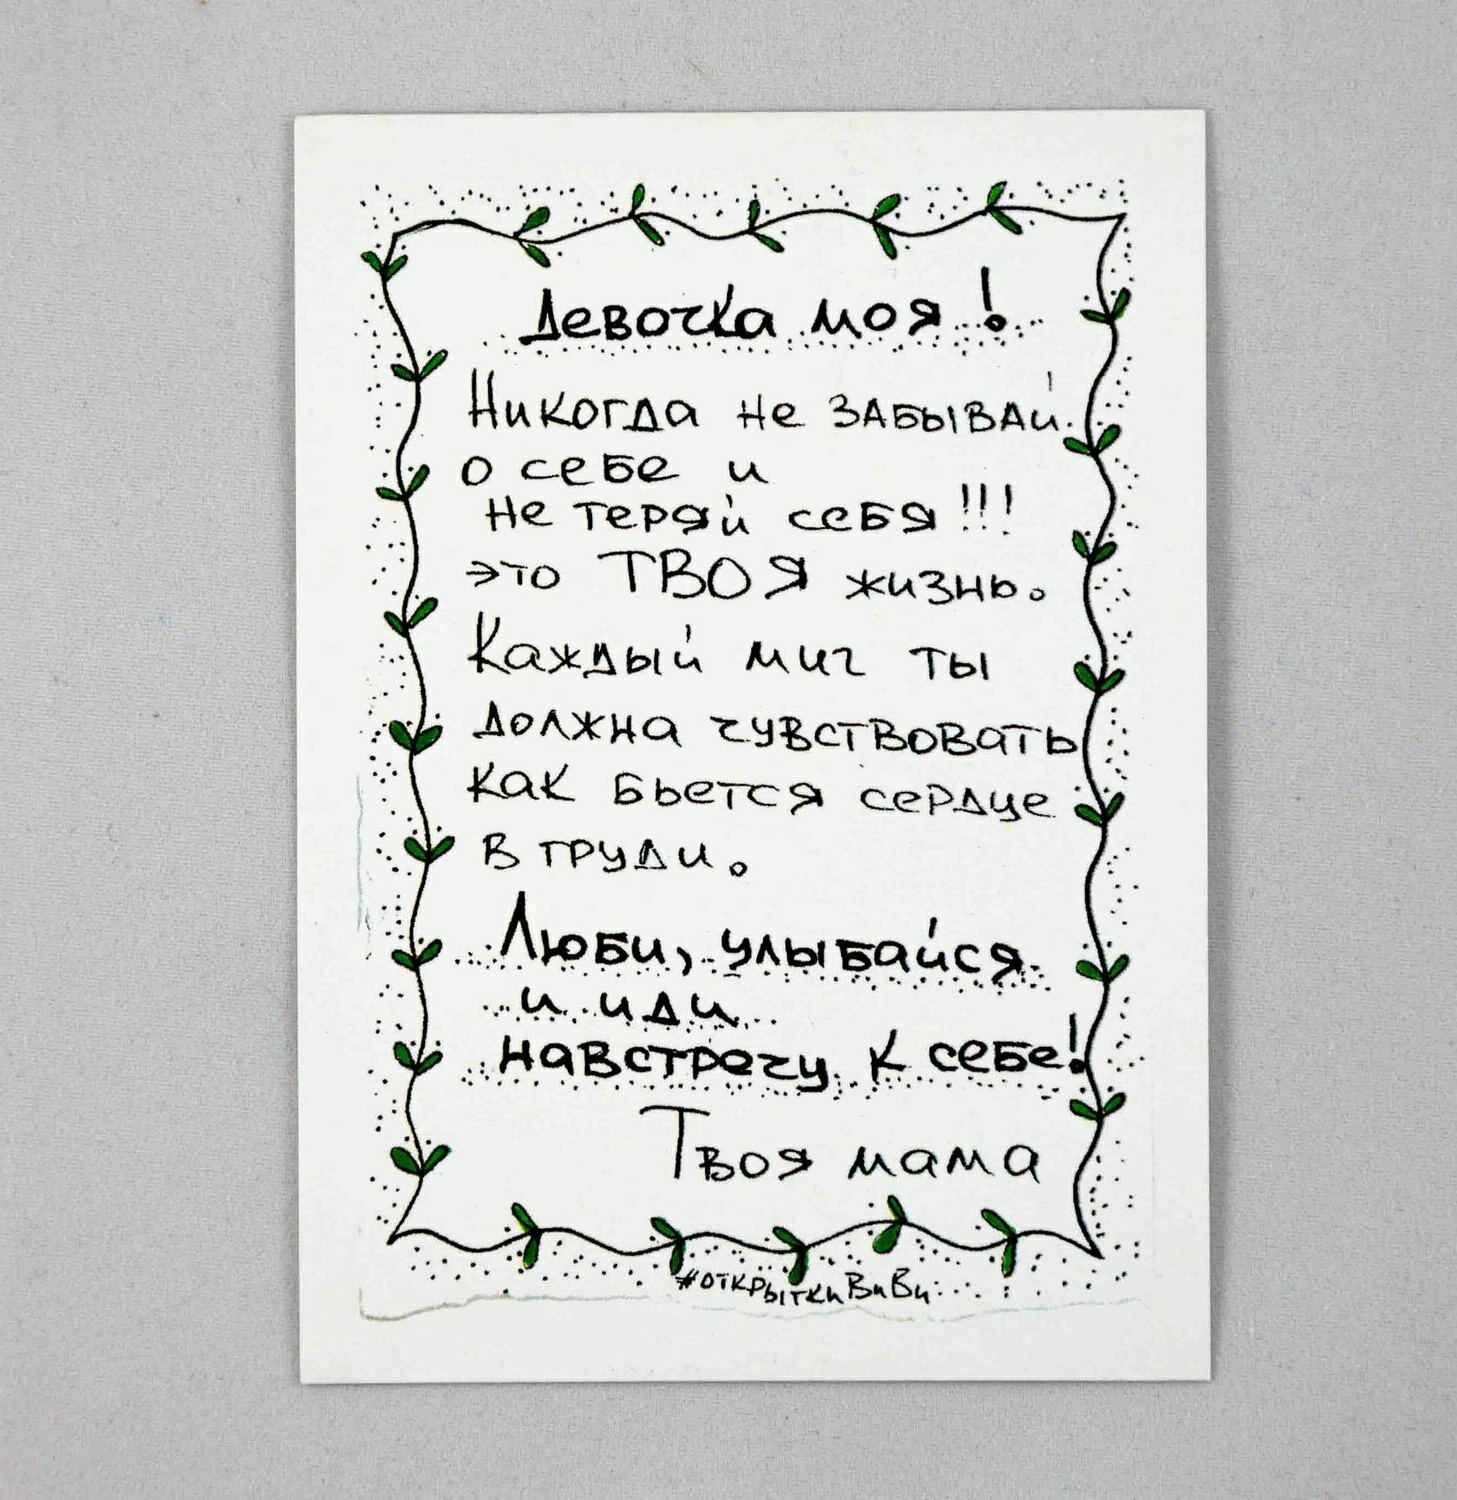 Девочка моя!
Никогда не ЗАБЫВАй
о себе и
не теряй себя!!!
это ТВОЯ жизнь.
Каждый миг ты
должна чувствовать
как бьется сердце
в груди.
Люби, улыбайся
и иди
навстречу к себе!
Твоя мама
#открыткиВиВи